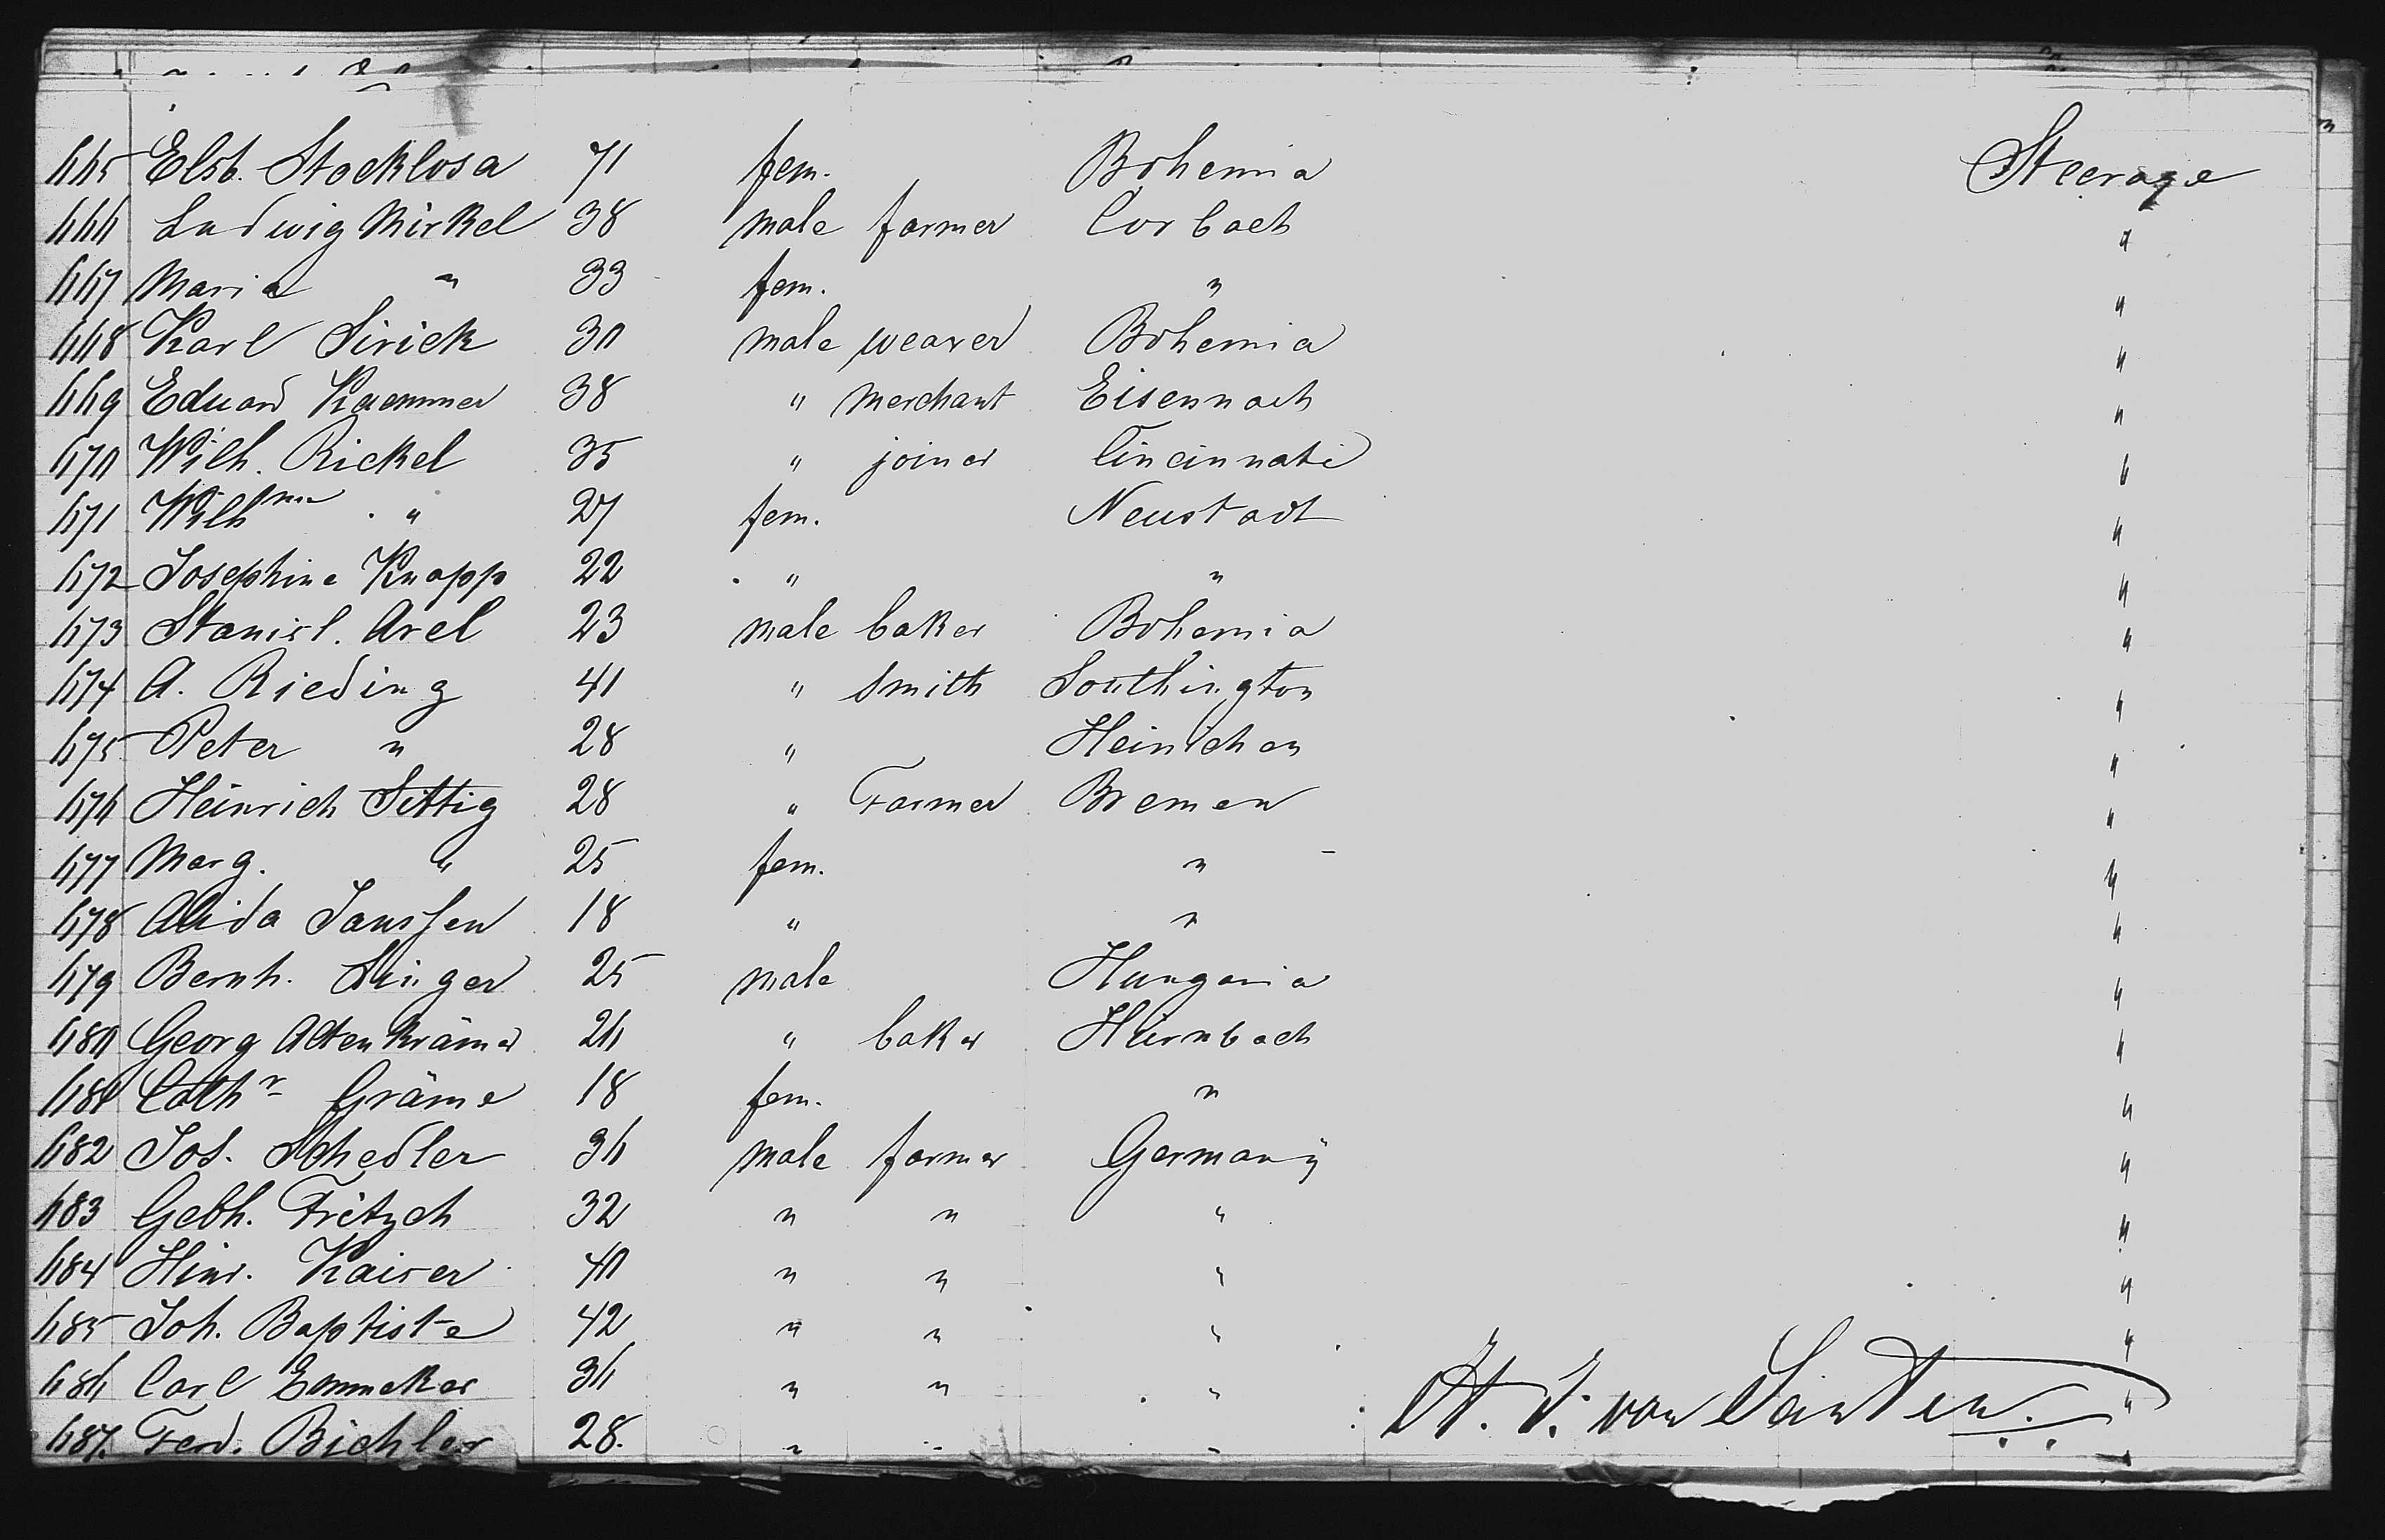 665 Elsb. Stocklosa 71 fem. Bohemia Steerage
666 Ludwig Mirkel 38 male farmer Corbach "
667 Maria " 33 fem. " "
668 Karl Sirick 30 male weaver Bohemia "
669 Eduard Kaemmer 38 " merchant Eisennach "
670 Wilh. Rickel 35 " joiner Cincinnati "
671 Wilhme " 27 fem. Neustadt "
672 Josephine Knapp 22 " " "
673 Stanisl. Arel 23 male baker Bohemia "
674 A. Rieding 41 " smith Southington "
675 Peter " 28 " Heinichen "
676 Heinrich Sittig 28 " Farmer Bremen "
677 Marg. " 25 fem. " "
678 Alida Janssen 18 " " "
679 Bernh. Singer 25 male Hungaria "
680 Georg Altenkrämer 26 " baker Hürnbach "
681 Cathr Gräme 18 fem. " "
682 Jos. Schedler 36 male farmer Germany "
683 Gebh. Fritzch 32 " " " "
684 Hinr. Kaiser 40 " " " "
685 Joh. Baptiste 42 " " " "
686 Carl Emmeker 36 " " " "
687. Ferd. Bichler 28. " " " "
H. F. von Santen.